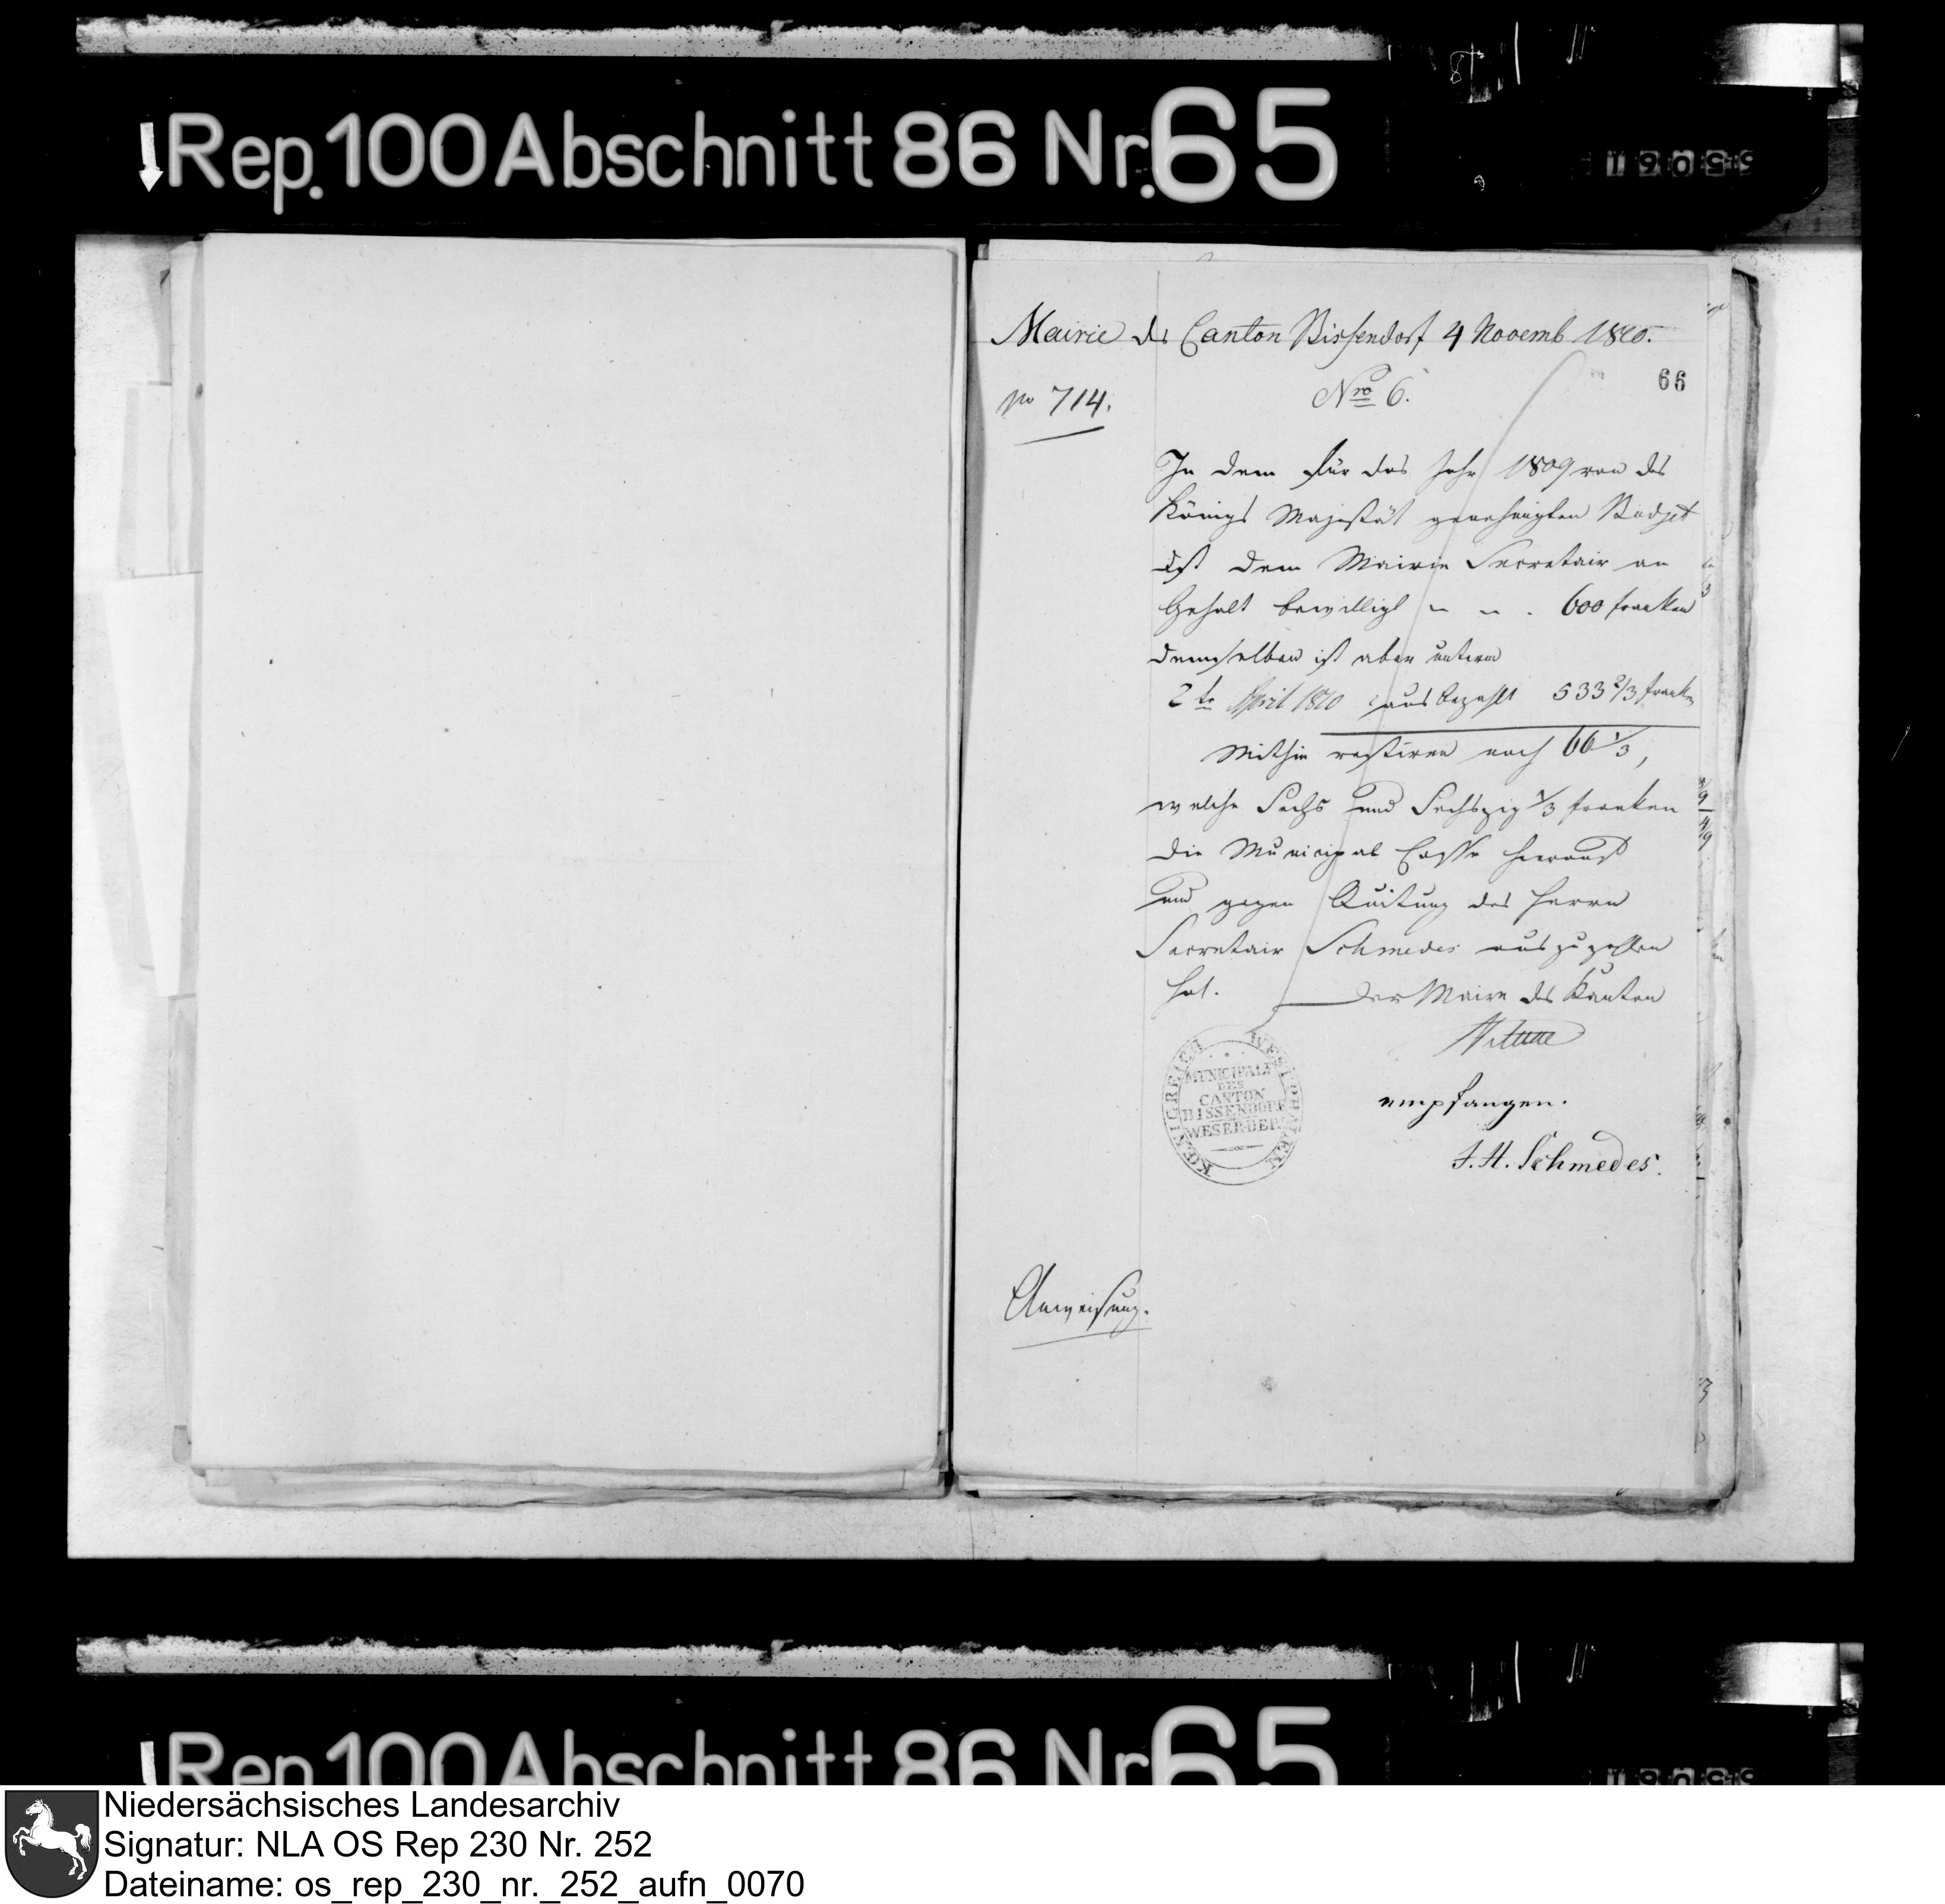 Rep. 100 Abschnitt 86 Nr. 65
Mairie des Canton Bissendorf 4 Novemb 1810.
66
Nro 6.
no 714.
In dem für das Jahr 1809 von des
Königs Majestät genehmigten Büdjet
ist dem Mairie Secretair an
Gehalt bewilligt 600 franken
demselben ist aber unterm
2te April 1810 ausbezahlt 533 2/3 franken
Mithin restiren noch 66 1/3,
welche Sechs und Sechszig 1/3 franken
die Municipal Casse hierauf
und gegen Quitung des Herrn
Secretair Schmedes auszuzahlen
hat. Der Maire des Kanton
KŒNIGREICH WESTPHALEN
MUNICIPALT
DES
CANTON
BISSENDORF
WESER-DEP.
empfangen.
J. H. Schmedes.
Anweisung.
Rep. 100 Abschnitt 86 Nr. 65
Niedersächsisches Landesarchiv
Signatur: NLA OS Rep 230 Nr. 252
Dateiname: os_rep_230_nr._252_aufn_0070